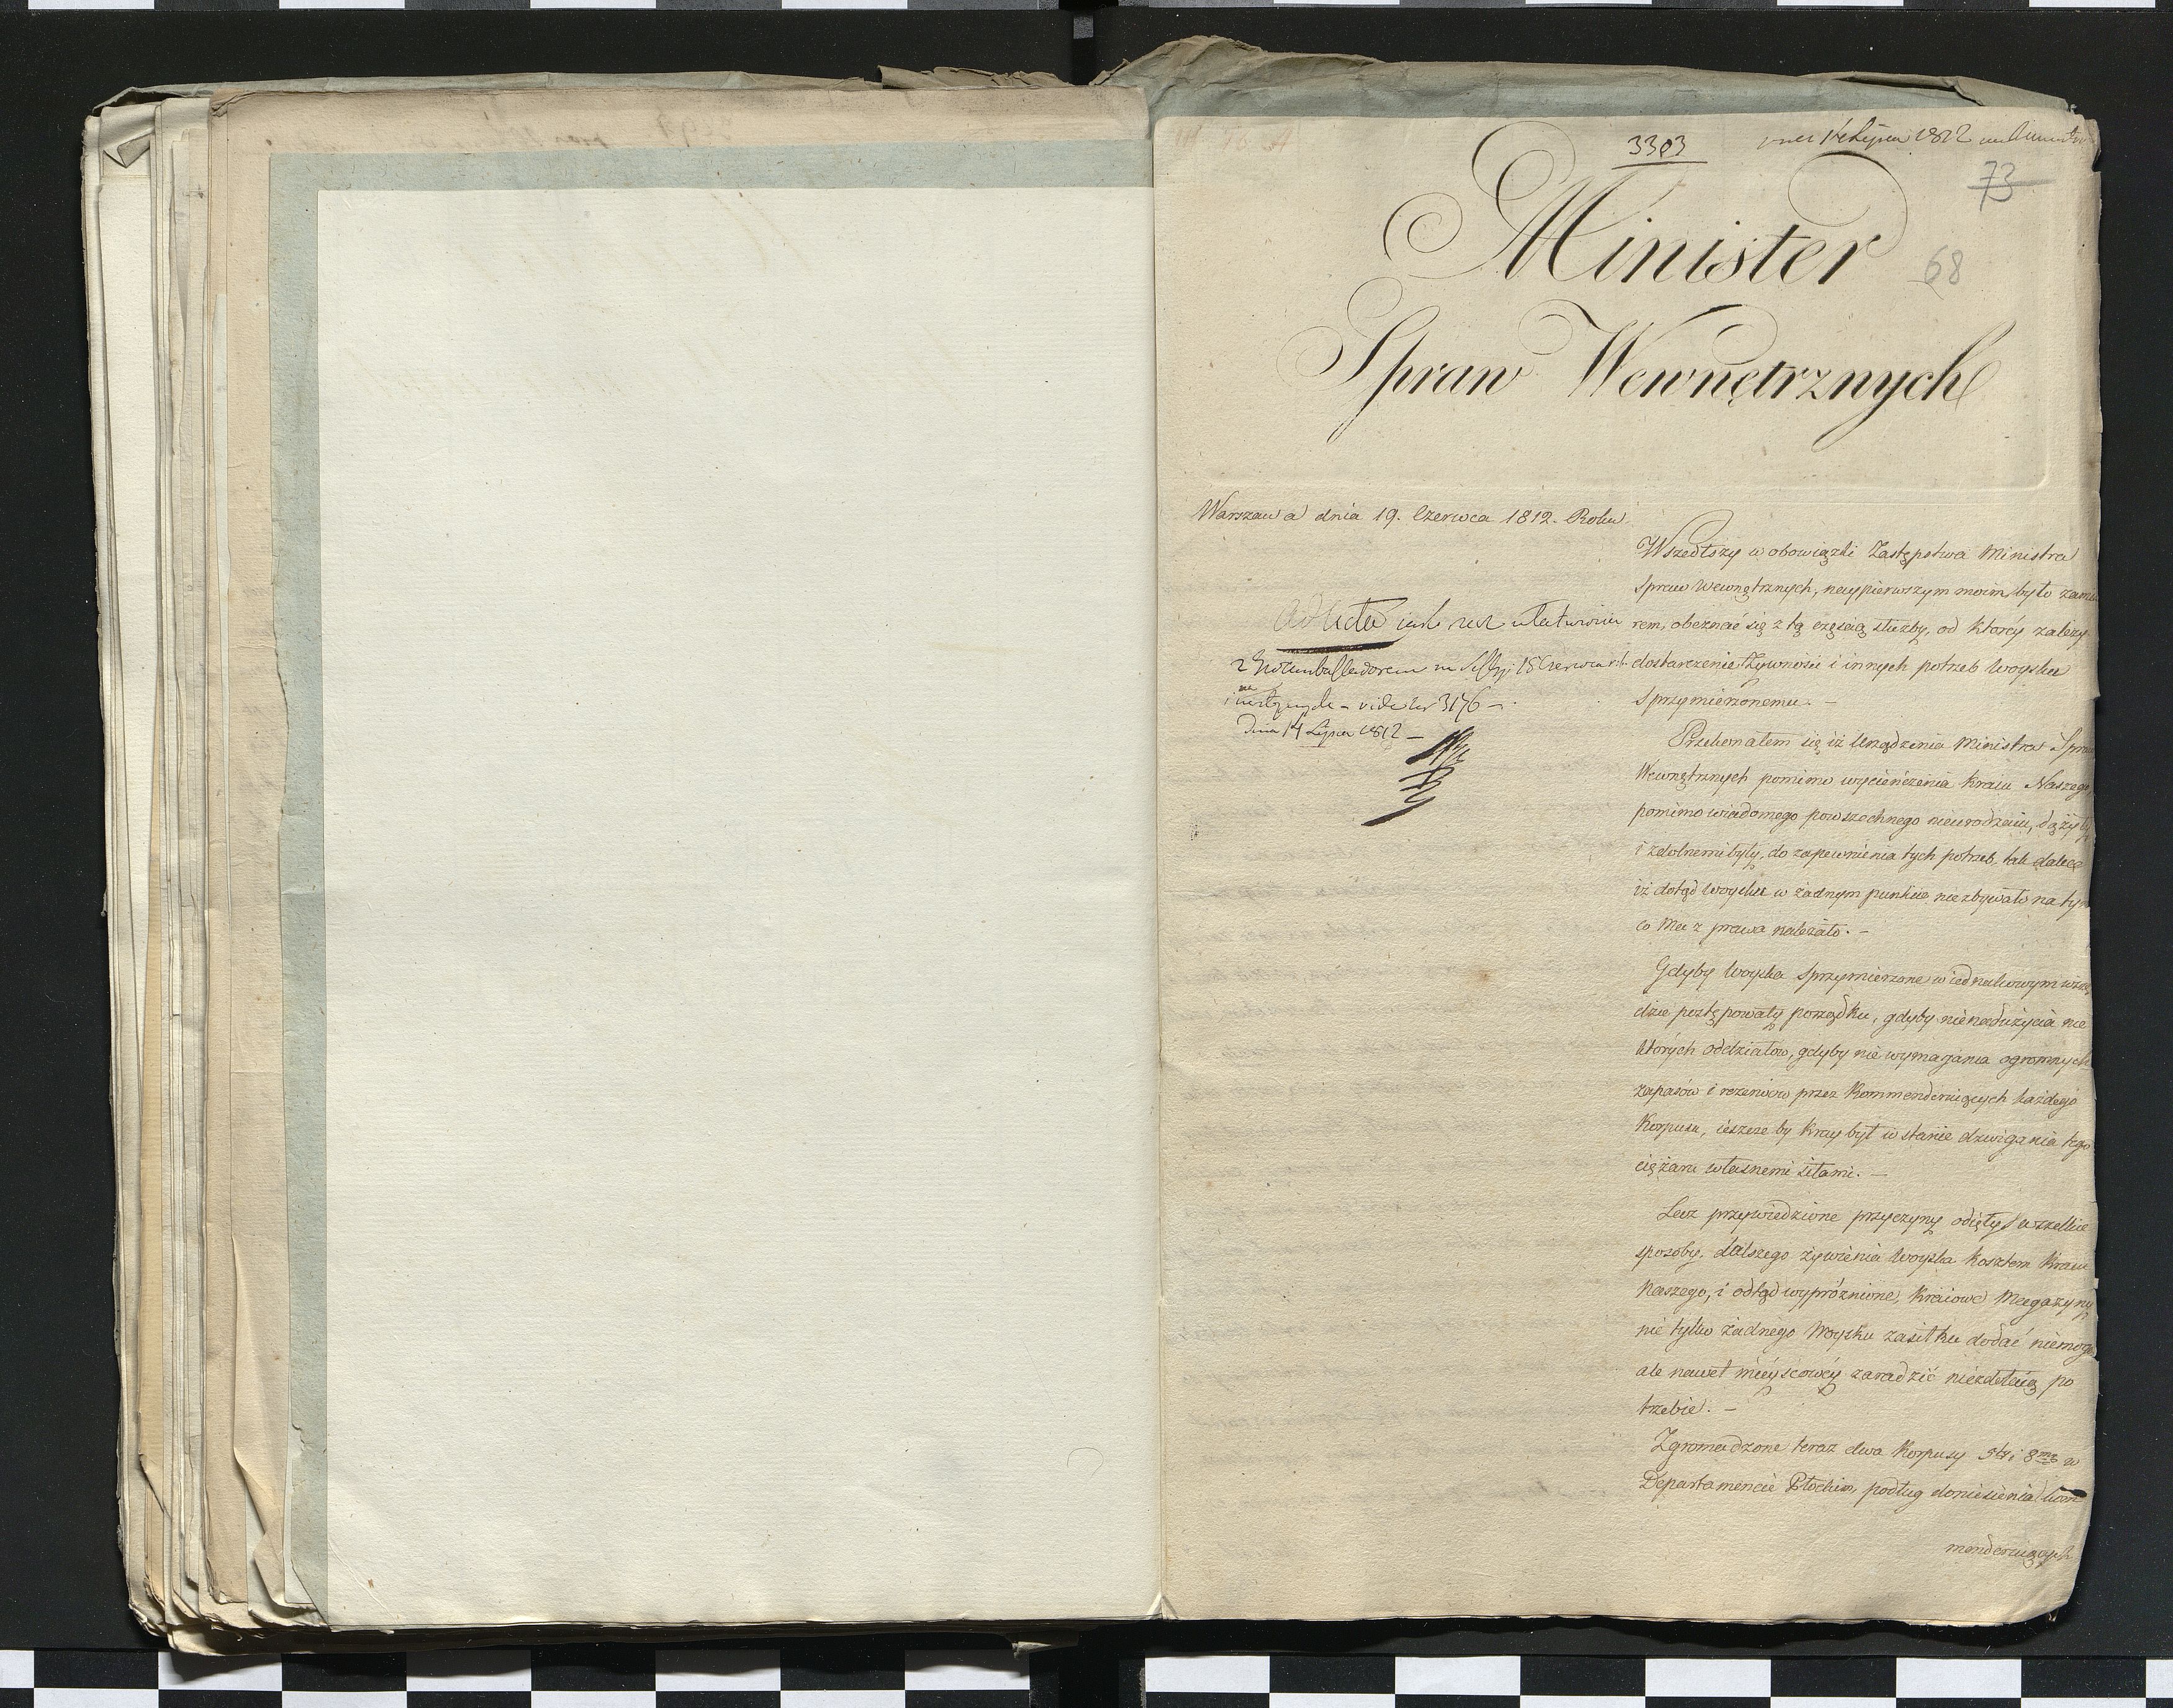 3303
14 Lipca 1812
73
Minister
68
Spraw Wewnętrznych
Warszawa dnia 19. Czerwca 1812. Roku
Ad Acta iako
18 Czerwca
vide Nr 3176 -
Dnia 14 Lipca 1812 -
Wszedłszy w obowiązki Zastępstwa Ministra
Spraw Wewnętrznych, naypierwszym moim było zamia
rem, obeznać się z tą częścią służby, od którey zależy
dostarczenie żywności i innych potrzeb Woysku
Sprzymierzonemu. -
Przekonałem się iż Urządzenia Ministra Spraw
Wewnętrznych pomimo wycieńczenia Kraiu Naszego,
pomimo wiadomego powszechnego nieurodzaiu, dążyły
i zdolnemi były, do zapewnienia tych potrzeb, tak dalece
iż dotąd Woysku w żadnym punkcie niezbywało na tym
co Mu z prawa należało. -
Gdyby Woyska Sprzymierzone w iednakowym wszę
dzie postępowały porządku, gdyby nienadużycia nie
których oddziałów, gdyby nie wymagania ogromnych
zapasów i rezerwów przez Kommenderuiących każdego
Korpusu, ieszcze by Kray był w stanie dzwigania tego
ciężaru własnemi siłami. -
Lecz przywiedzione przyczyny odięły wszelkie
sposoby, dalszego żywienia Woyska kosztem Kraiu
Naszego, i odtąd wypróżnione, Kraiowe Magazyny
nie tylko żadnego Woysku zasiłku dodać niemogą
ale nawet mieyscowey zaradzić niezdołaią po
trzebie. -
Zgromadzone teraz dwa Korpusy 5ty i 8my w
Departamencie Płockim, podług doniesienia kom
menderuiących